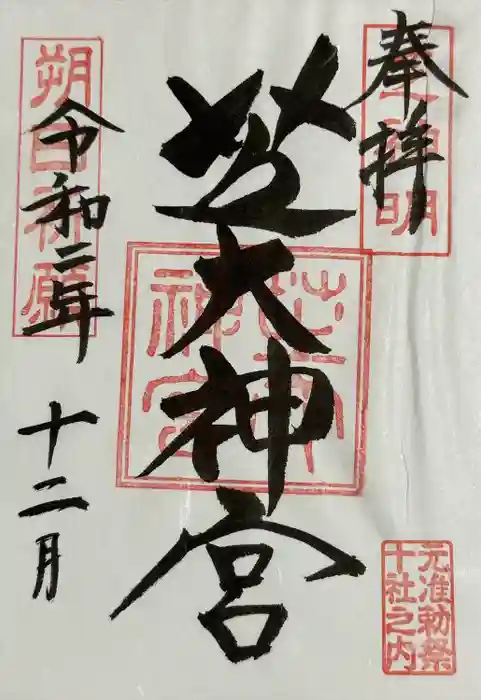 奉拝
芝神明
芝大神宮
芝大
神宮
元准勅祭
十社之内
朔日祈願
令和二年
十二月